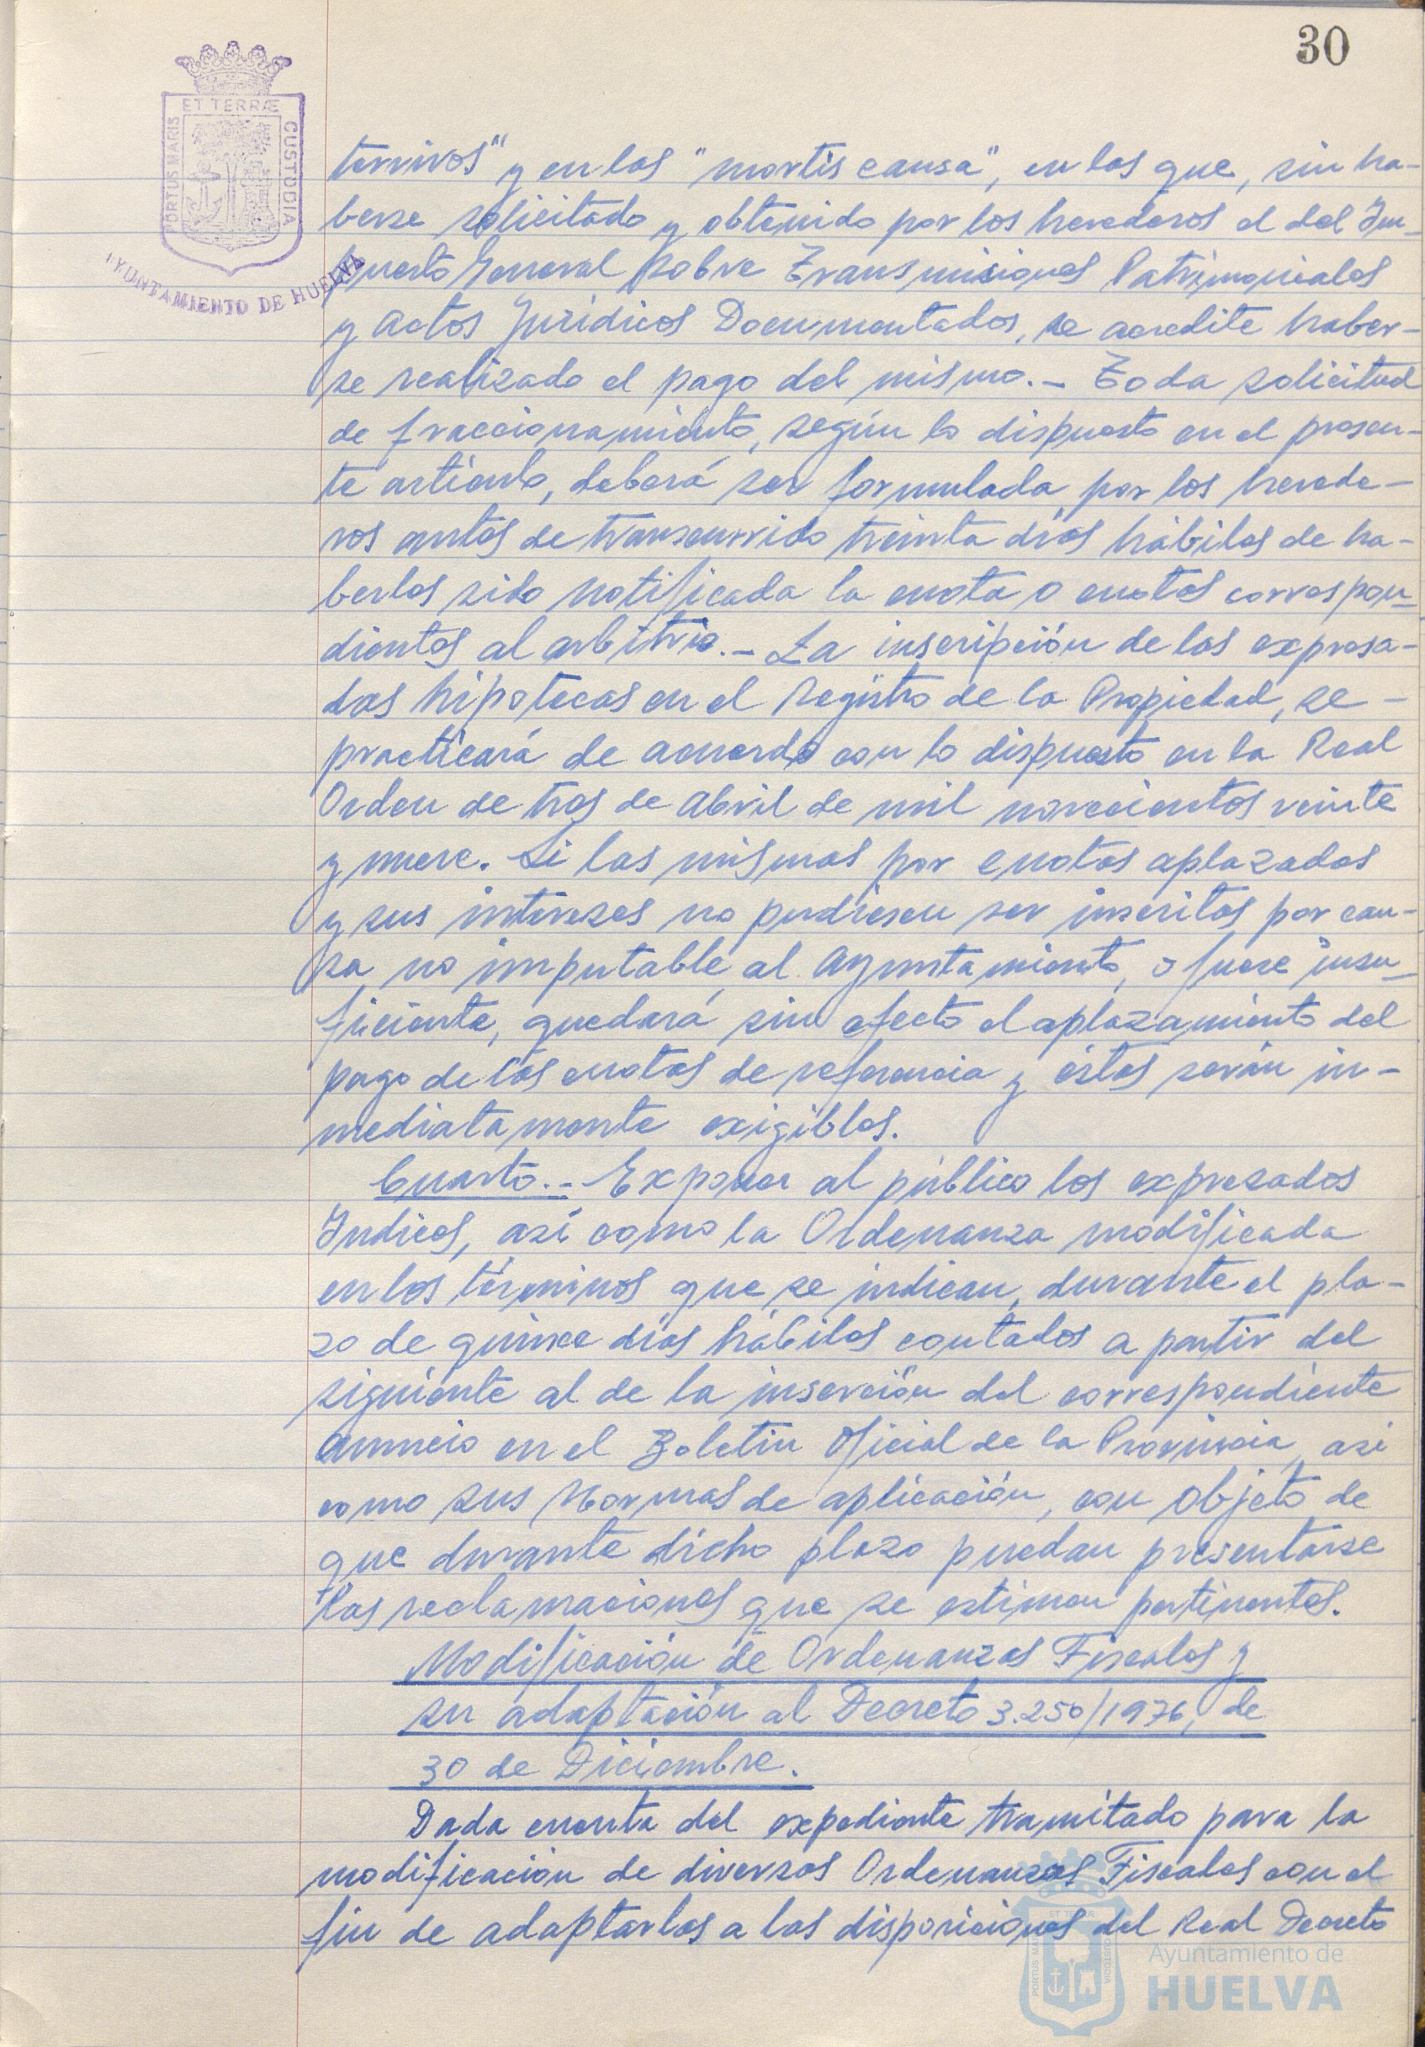 30
ET TERRÆ
PORTUS MARIS
CUSTODIA
AYUNTAMIENTO DE HUELVA
tervivos" y en las "mortis causa", en las que, sin ha-
berse solicitado y obtenido por los herederos el del Im-
puesto General sobre Transmisiones Patrimoniales
y Actos Jurídicos Documentados, se acredite haber-
se realizado el pago del mismo.- Toda solicitud
de fraccionamiento, según lo dispuesto en el presen-
te artículo, deberá ser formulada por los herede-
ros antes de transcurrido treinta días hábiles de ha-
berlos sido notificada la cuota o cuotas correspon-
dientes al arbitrio.- La inscripción de las expresa-
das hipotecas en el Registro de la Propiedad, se -
practicará de acuerdo con lo dispuesto en la Real
Orden de tres de Abril de mil novecientos veinte
y nueve. Si las mismas por cuotas aplazadas
y sus intereses no pudiesen ser inscritas por cau-
sa no imputable al Ayuntamiento, o fuese insu-
ficiente, quedará sin efecto el aplazamiento del
pago de las cuotas de referencia y éstas serán in-
mediatamente exigibles.
Cuarto.- Exponer al público los expresados
Indices, así como la Ordenanza modificada
en los términos que se indican, durante el pla-
zo de quince días hábiles contados a partir del
siguiente al de la inserción del correspondiente
anuncio en el Boletín Oficial de la Provincia, asi
como sus Normas de aplicación, con objeto de
que durante dicho plazo puedan presentarse
las reclamaciones que se estimen pertinentes.
Modificación de Ordenanzas Fiscales y
su adaptación al Decreto 3.250/1976, de
30 de Diciembre.
Dada cuenta del expediente tramitado para la
modificación de diversas Ordenanzas Fiscales con el
fin de adaptarlas a las disposiciones del Real Decreto
Ayuntamiento de
HUELVA